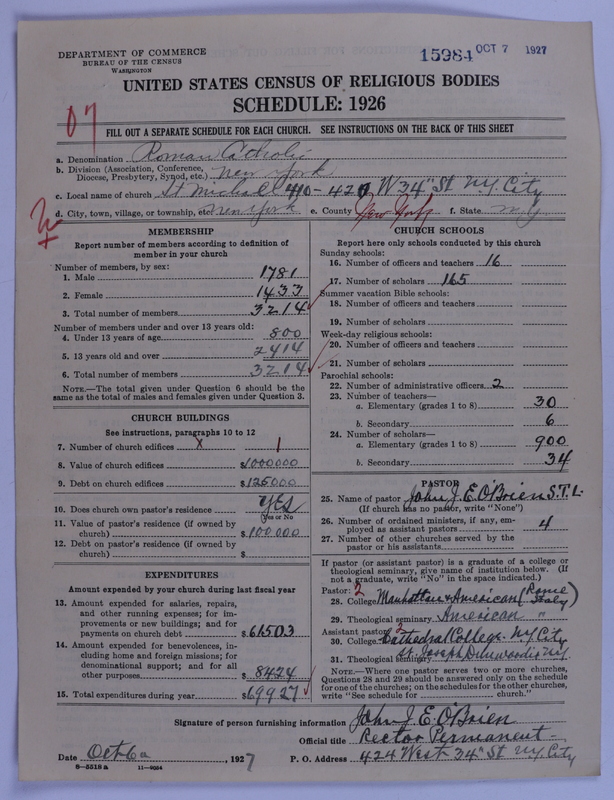 DEPARTMENT OF COMMERCE
BUREAU OF THE CENSUS
WASHINGTON
15984 OCT 7 1927
UNITED STATES CENSUS OF RELIGIOUS BODIES
SCHEDULE: 1926
07
FILL OUT A SEPARATE SCHEDULE FOR EACH CHURCH. SEE INSTRUCTIONS ON THE BACK OF THIS SHEET
a. Denomination Roman Catholic
b. Division (Association, Conference, Diocese, Presbytery, Synod, etc.) New York
c. Local name of church St Michael 410-420 W 34" St N.Y. City
d. City, town, village, or township, etc. New York e. County New York f. State N.Y.
MEMBERSHIP
Report number of members according to definition of
member in your church
Number of members, by sex:
1. Male 1781
2. Female 1433
3. Total number of members 3214
Number of members under and over 13 years old:
4. Under 13 years of age 800
5. 13 years old and over 2414
6. Total number of members 3214
NOTE.—The total given under Question 6 should be
same as the total of males and females given under Question 3.
CHURCH BUILDINGS
See instructions, paragraphs 10 to 12
7. Number of church edifices x 1
8. Value of church edifices $1000000
9. Debt on church edifices $125000
10. Does church own pastor's residence yes
(Yes or No
11. Value of pastor's residence (if owned by
church) $100000
12. Debt on pastor's residence (if owned by
church) $
EXPENDITURES
Amount expended by your church during last fiscal year
13. Amount expended for salaries, repairs,
and other running expenses; for im-
provements or new buildings; and for
payments on church debt $61503
14. Amount expended for benevolences, in-
cluding home and foreign missions; for
denominational support; and for all
other purposes $8424
15. Total expenditures during year $69927
CHURCH SCHOOLS
Report here only schools conducted by this church
Sunday schools:
16. Number of officers and teachers 16
17. Number of scholars 165
Summer vacation Bible schools:
18. Number of officers and teachers
19. Number of scholars
Week-day religious schools:
20. Number of officers and teachers
21. Number of scholars
Parochial schools:
22. Number of administrative officers 2
23. Number of teachers—
a. Elementary (grades 1 to 8) 30
b. Secondary 6
24. Number of scholars—
a. Elementary (grades 1 to 8) 900
b. Secondary 34
PASTOR
25. Name of pastor John J. E. O'Brien S.T.L.
(If church has no pastor, write "None")
26. Number of ordained ministers, if any, em-
ployed as assistant pastors 4
27. Number of other churches served by the
pastor or his assistants
If pastor (or assistant pastor) is a graduate of a college or
theological seminary, give name of institution below. (If
not a graduate, write "No" in the space indicated.)
Pastor: 2
28. College Manhattan & American (Rome Italy)
29. Theological seminary American "
Assistant pastor: 2
30. College Cathedral College N.Y. City
31. Theological seminary St. Joseph Dunwoodie N.Y.
NOTE.—Where one pastor serves two or more churches,
Questions 28 and 29 should be answered only on the schedule
for one of the churches; on the schedules for the other churches,
write "See schedule for church."
Signature of person furnishing information John J. E. O'Brien
Official title Rector Permanent
Date Oct 6, 1927 P. O. Address 424 West 34" St N.Y. City
8-5518 a 11-9054